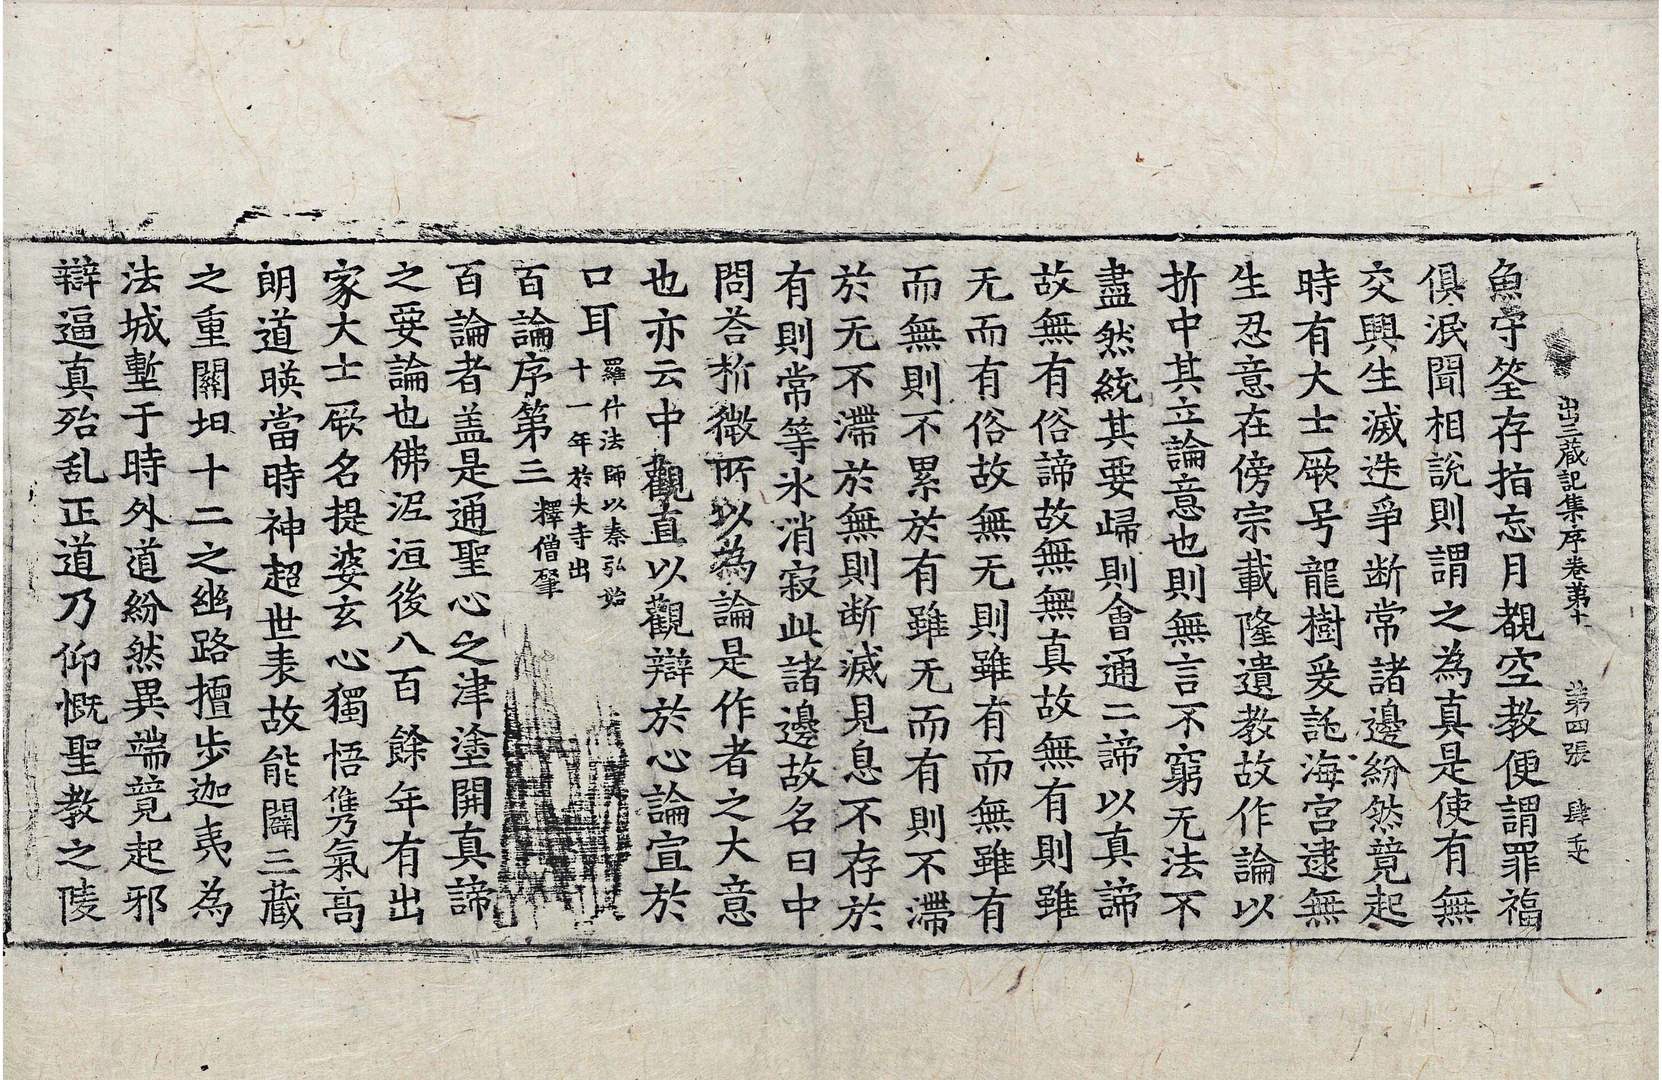 出三蔵記集序卷第十一 第四張 肆
魚守筌存指忘月覩空教便謂罪福
俱泯聞相說則謂之為真是使有無
交興生滅迭爭断常諸邊紛然竟起
時有大士厥号龍樹爰託海宮逮無
生忍意在傍宗載隆遺教故作論以
折中其立論意也則無言不窮无法不
盡然統其要歸則會通二諦以真諦
故無有俗諦故無無真故無有則雖
无而有俗故無无則雖有而無雖有
而無則不累於有雖无而有則不滯
於无不滯於無則断滅見息不存於
有則常等氷消寂此諸邊故名曰中
問荅析微所以為論是作者之大意
也亦云中觀直以觀辯於心論宣於
口耳 羅什法師以秦弘始
十一年於大寺出
百論序第三 釋僧肇
百論者盖是通聖心之津塗開真諦
之要論也佛泥洹後八百餘年有出
家大士厥名提婆玄心獨悟儁氣高
朗道暎當時神超世表故能闢三藏
之重關坦十二之幽路擅步迦夷為
法城壍于時外道紛然異端竟起邪
辯逼真殆乱正道乃仰慨聖教之陵